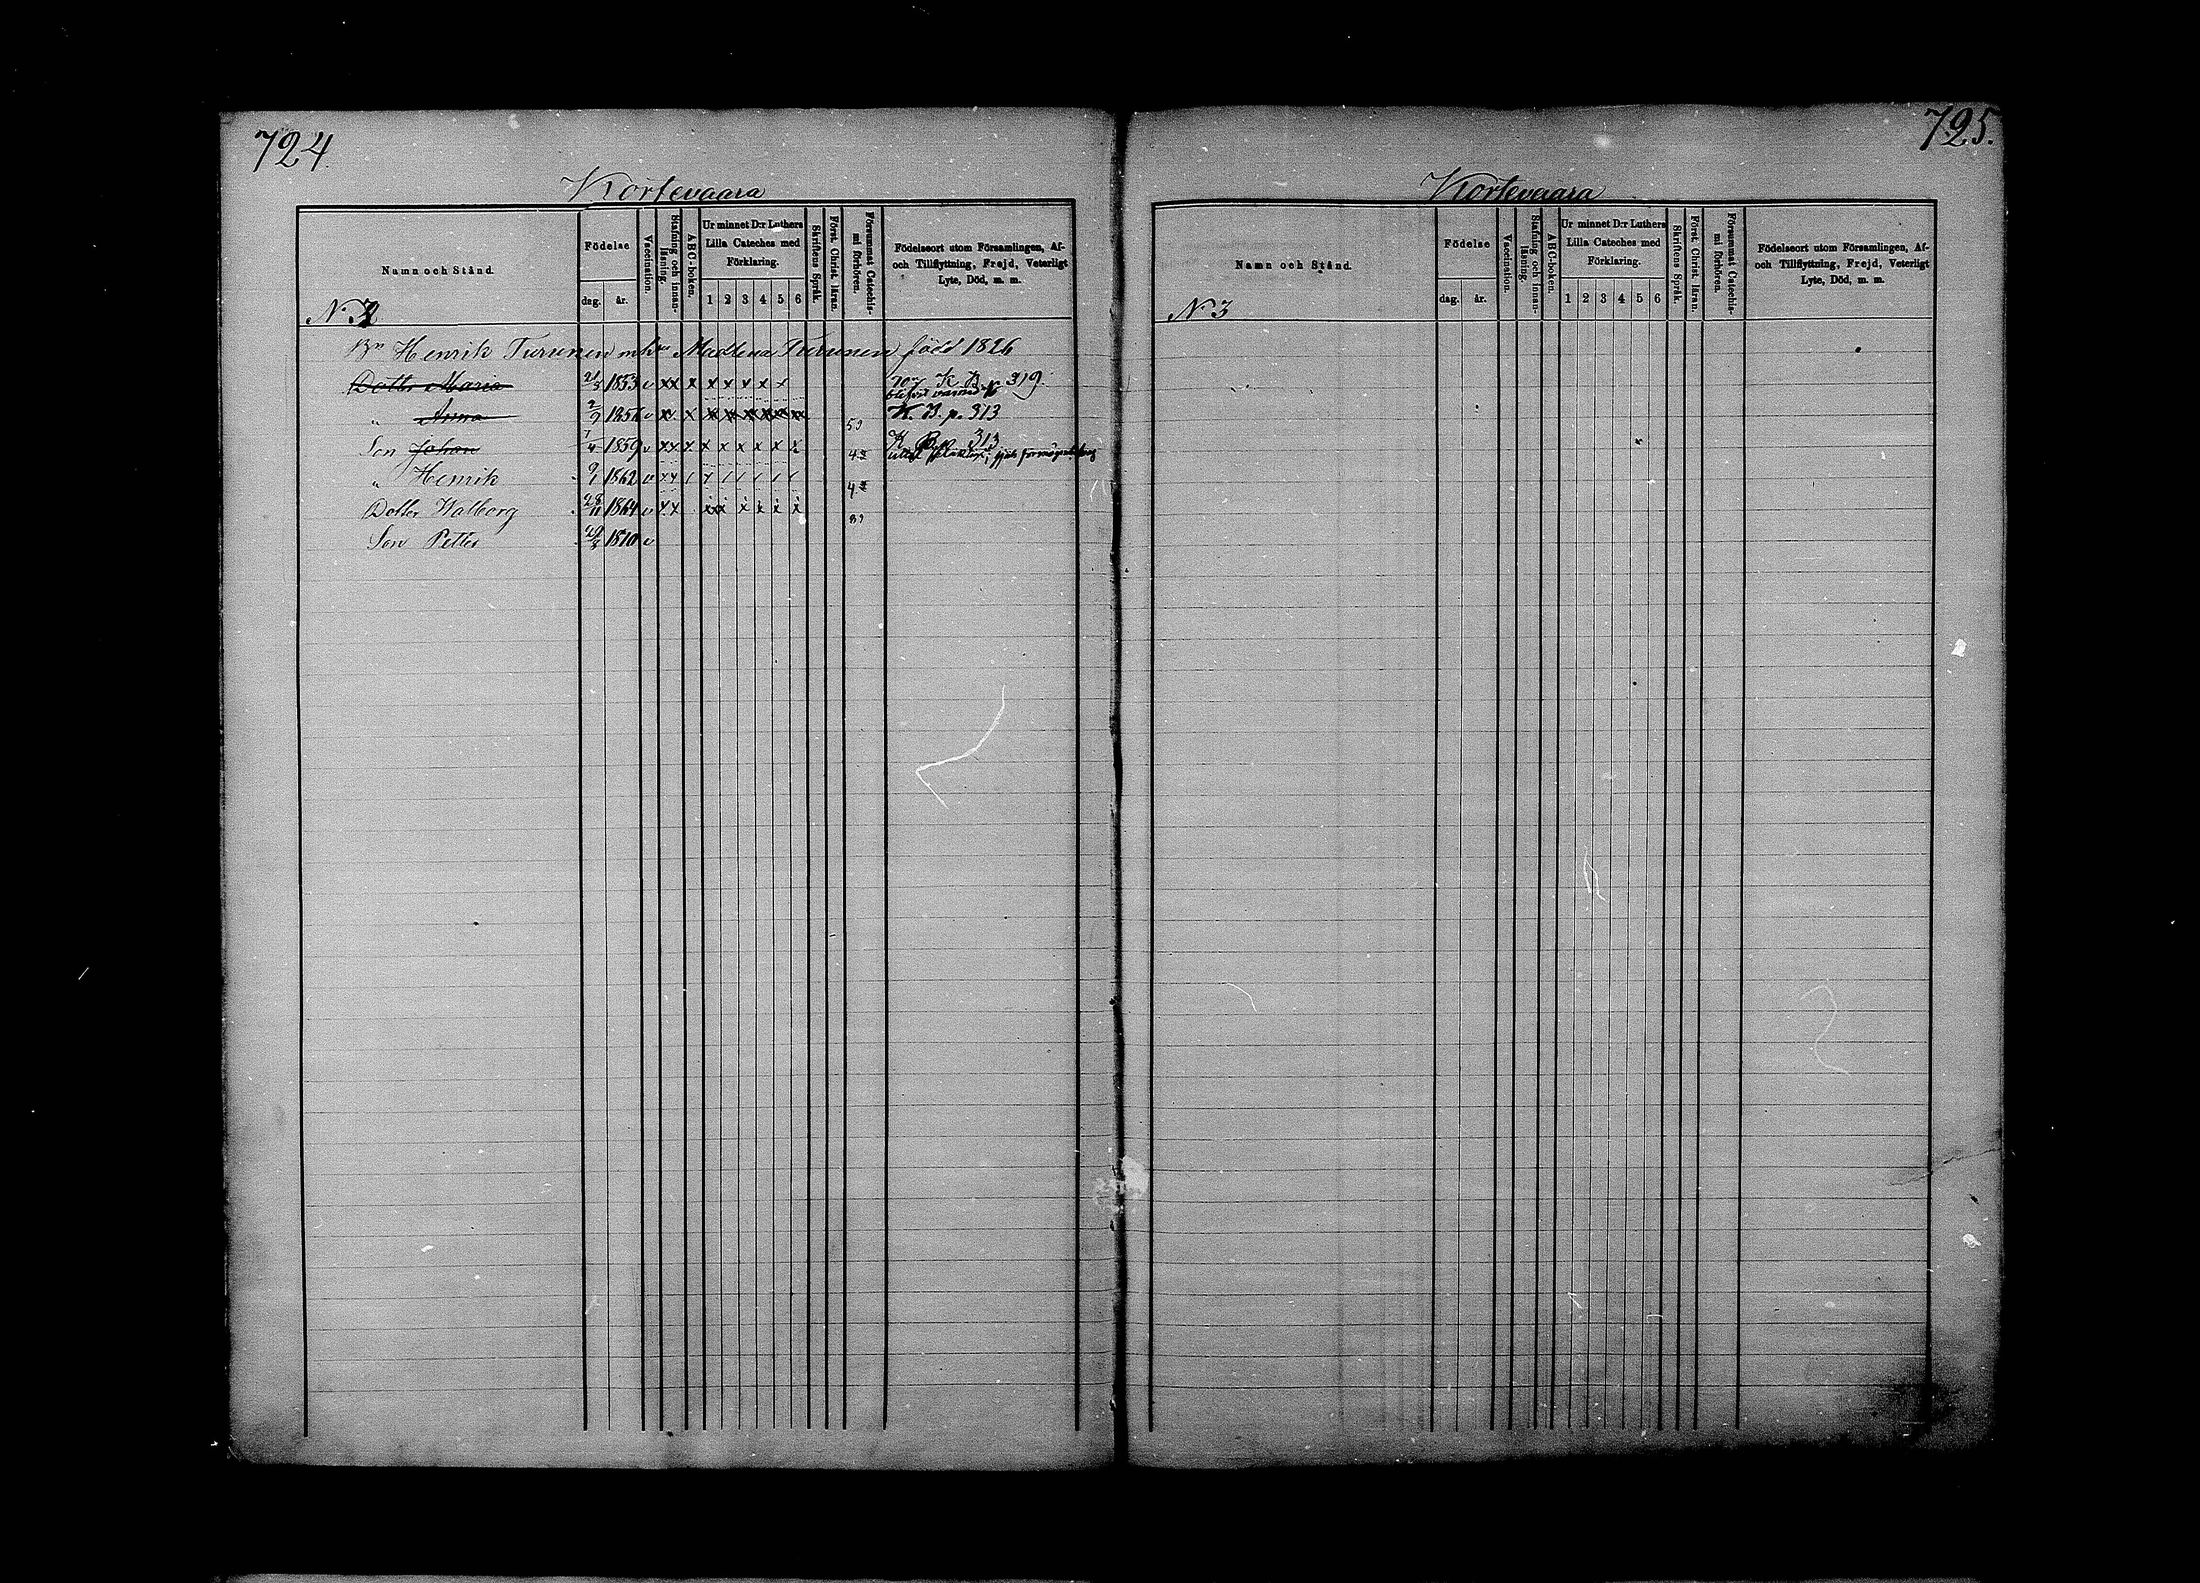 724.
Kortevaara
Namn och Stånd.
Födelse
dag. år.
Vaccination.
Stafning och innanläsning.
ABC-boken.
Ur minnet D:r Luthers
Lilla Cateches med
Förklaring.
1 2 3 4 5 6
Skriftens Språk.
Först. Christ. läran.
Försummat Catechismi förhören.
Födelseort utom Församlingen, Af-
och Tillflyttning, Frejd, Veterligt
Lyte, Död, m. m.
N. 2
Bn Henrik Turunen m hu Madlena Turunen född 1826
Dotter Maria 21/3 1853 v xx x x x x x x 707 K. B. p. 319.
" Anna 2/9 1856 v x x x x x x x x 59 K. B. p. 313
Son Johan 7/4 1859 v xx x x x x x x x K. B. p. 313
" Henrik 9/1 1862 v
Dotter Walborg 28/11 1864 v xx
Son Petter 29/5 1870 v
725.
Kortevaara
Namn och Stånd.
Födelse
dag. år.
Vaccination.
Stafning och innanläsning.
ABC-boken.
Ur minnet D:r Luthers
Lilla Cateches med
Förklaring.
1 2 3 4 5 6
Skriftens Språk.
Först. Christ. läran.
Försummat Catechismi förhören.
Födelseort utom Församlingen, Af-
och Tillflyttning, Frejd, Veterligt
Lyte, Död, m. m.
N. 3